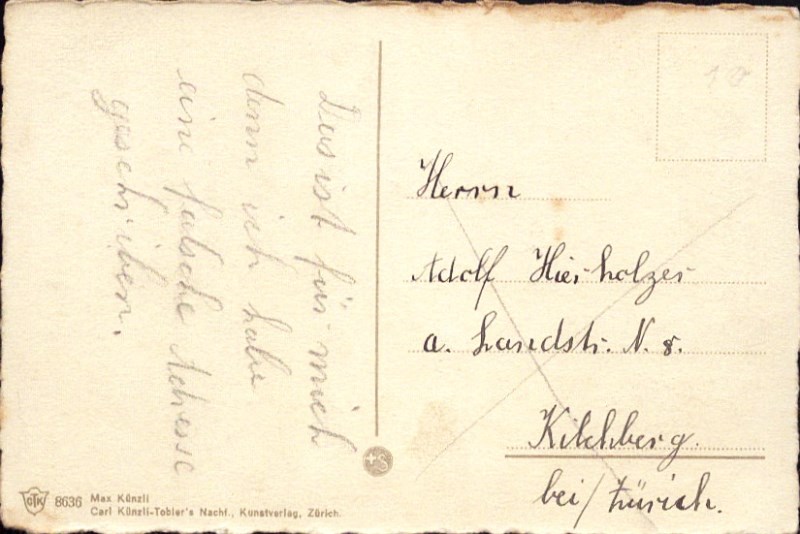 Das ist für mich
denn ich habe
eine falsche Adresse
geschrieben.
10
Herrn
Adolf Hierholzer
a. Landstr. N. 8.
Kilchberg.
bei / Zürich.
CTK 8636 Max Künzli
Carl Künzli-Tobler's Nachf., Kunstverlag, Zürich.